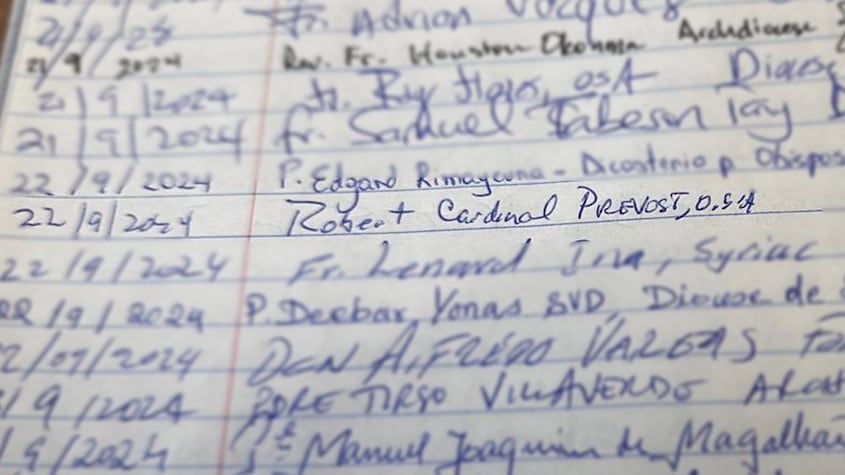 21/9/24 Fr. Adrian Vazquez
21/9/2024 Rev. Fr. Houston Okonma Archdiocese
21/9/2024 fr. Ray Flores, OSA Diocese
21/9/2024 fr. Samuel
22/9/2024 P. Edgard Rimaycuna - Dicasterio p. Obispos
22/9/2024 Robert Cardinal PREVOST, O.S.A
22/9/2024 Fr. Lenard Ina, Syriac
22/9/2024 P. Deebar Yonas SVD, Diocese de
2/09/2024 DON ALFREDO VARGAS
/9/2024 PDRE TIRSO VILLAVERDE
/9/2024 Manuel Joaquim de Magalhã